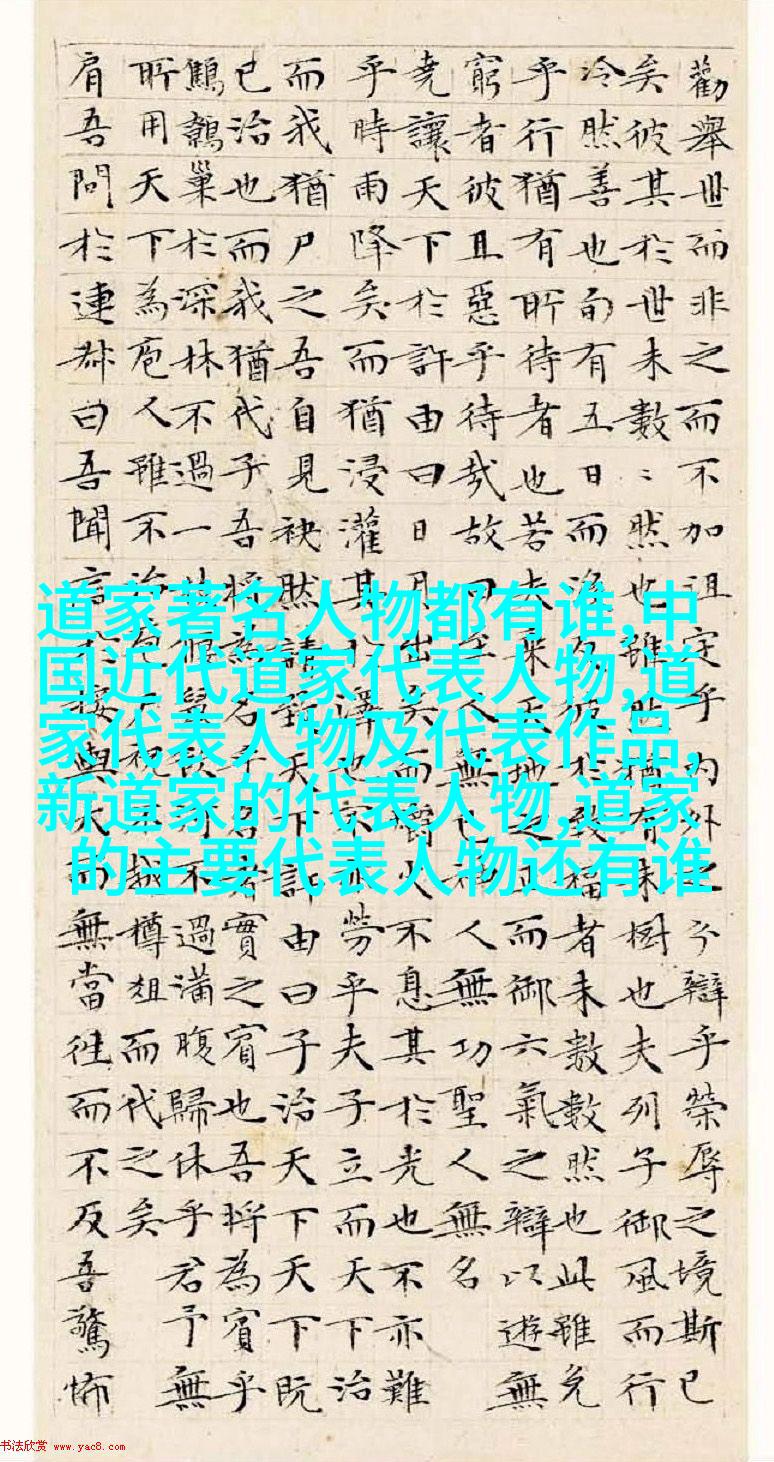 勸舉世而非之而不加沮定乎內外之分辯乎榮辱之境斯已
矣彼其於世未數〻然也雖然猶有未樹也夫列子御風而行
冷然善也旬有五日〻而後反彼於致福者未數數然也此雖免
乎行猶有所待者也若夫乘天地之正而御六氣之辯以遊無
窮者彼且惡乎待哉故曰至人無己神人無功聖人無名
堯讓天下於許由曰日月出矣而爝火不息其於光也不亦難
乎時雨降矣而猶浸灌其於澤也不亦勞乎夫子立而天下治
而我猶尸之吾自見缺然請致天下許由曰子治天下天下既
已治也而我猶代子吾將為名乎名者實之賓也吾將為賓乎
鷦鷯巢於深林不過一枝偃鼠飲河不過滿腹歸休乎君予無
所用天下為庖人雖不治庖尸祝不越樽俎而代之矣
肩吾問於連叔曰吾聞言於接輿大而無當往而不反吾驚怖
道家著名人物都有谁,中
国近代道家代表人物,道
家代表人物及代表作品,
新道家的代表人物,道家
的主要代表人物还有谁
书法欣赏 www.yac8.com